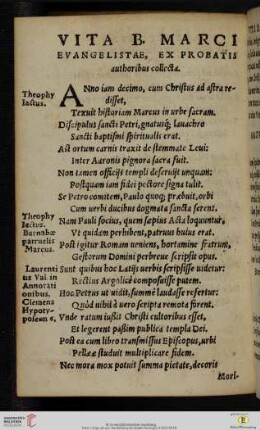 VITA B. MARCI
EVANGELISTAE, EX PROBATIS
authoribus collecta.
Theophy
lactus.
ANno iam decimo, cum Christus ad astra re-
disset,
Texuit historiam Marcus in urbe sacram.
Discipulus sancti Petri, gnatusq; lauachro
Sancti baptismi spiritualis erat.
Act ortum carnis traxit de stemmate Leui:
Inter Aaronis pignora sacra fuit.
Non tamen officijs templi deseruijt unquam:
Postquam iam fidei pectore signa tulit.
Se Petro comitem, Paulo quoq; præbuit, orbi
Cum uerbi ducibus dogmata sancta serens.
Theophy
lactus.
Barnabæ
patruelis
Marcus.
Nam Pauli socius, quem sæpius Acta loquuntur,
Vt quidam perhibent, patruus huius erat.
Post igitur Romam ueniens, hortamine fratrum,
Gestorum Domini perbreue scripsit opus.
Laurenti
us Val in
Annotati
onibus.
Clemens
Hypoty-
poseon 6.
Sunt quibus hoc Latijs uerbis scripsisse uidetur:
Rectius Argolicè composuisse putem.
Hoc Petrus ut uidit, summè laudasse refertur:
Quòd nihil à uero scripta remota firent.
Vnde ratum iussit Christi cultoribus esset,
Et legerent passim publica templa Dei.
Post ea cum libro transmissus Episcopus, urbi
Pellææ studuit multiplicare fidem.
Nec mora mox potuit summa pietate, decoris
Morl-